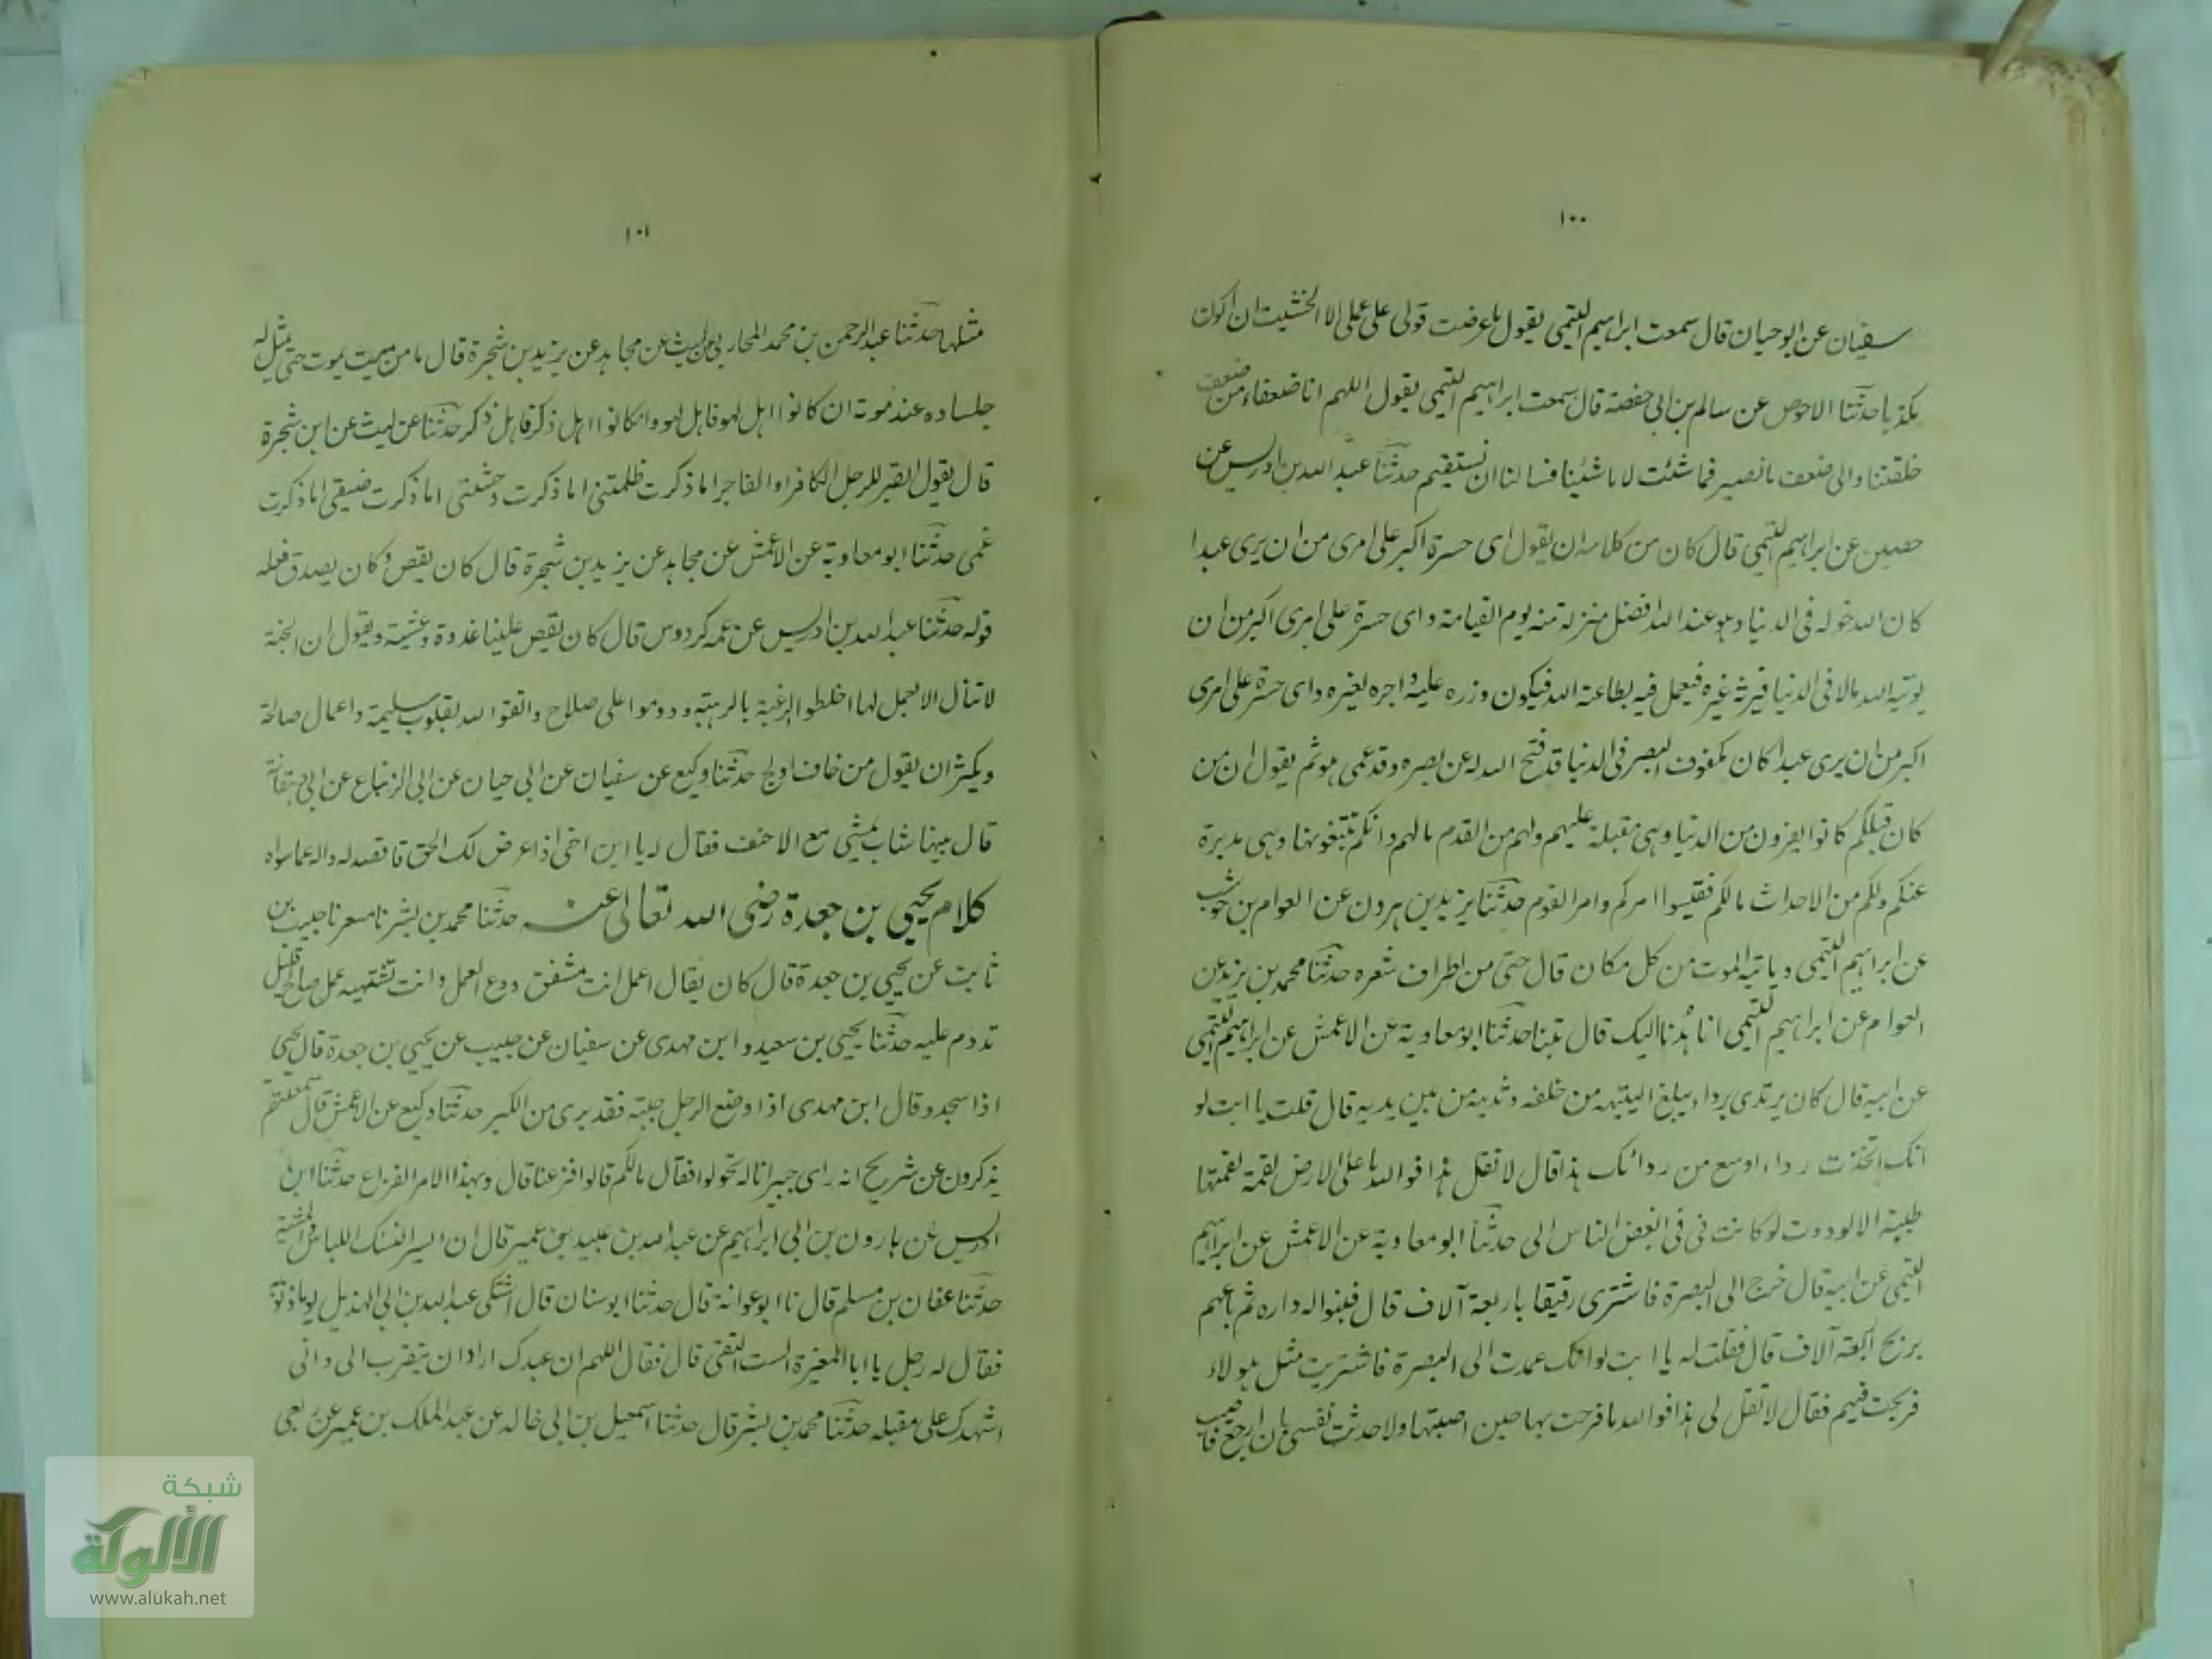 ١٠٠
سفيان عن ابو حيان قال سمعت ابراهيم التيمى يقول ما عرضت قولى على عملى الا خشيت ان اكون
مكذبا حدثنا الاحوص عن سالم بن ابى حفصة قال سمعت ابراهيم التيمى يقول اللهم انا ضعفاء من ضعف
خلقتنا والى ضعف ما نصير فما شئت لا ما شئنا فسالنا ان نستقيم حدثنا عبد الله بن ادريس عن
حصين عن ابراهيم التيمى قال كان من كلامه ان يقول اى حسرة اكبر على امرى من ان يرى عبدا
كان الله خوله فى الدنيا وهو عند الله افضل منزلة منه يوم القيامة واى حسرة على امرى اكبر من ان
يوتيه الله مالا فى الدنيا فيرثه غيره فيعمل فيه بطاعة الله فيكون وزره عليه واجره لغيره واى حسرة على امرى
اكبر من ان يرى عبدا كان مكفوف البصر فى الدنيا قد فتح الله له عن بصره وقد عمى هو ثم يقول ان من
كان قبلكم كانوا يفرون من الدنيا وهى مقبلة عليهم ولهم من القدم ما لهم وانكم تتبعونها وهى مدبرة
عنكم ولكم من الاحداث ما لكم فقيسوا امركم وامر القوم حدثنا يزيد بن هرون عن العوام بن حوشب
عن ابراهيم التيمى وياتيه الموت من كل مكان قال حتى من اطراف شعره حدثنا محمد بن يزيد عن
العوام عن ابراهيم التيمى انا هُدنا اليك قال تبنا حدثنا ابو معاوية عن الاعمش عن ابراهيم التيمى
عن ابيه قال كان يرتدى برداء يبلغ اليتيه من خلفه وثدييه من بين يديه قال قلت يا ابت لو
انك اتخذت رداء اوسع من ردائك هذا قال لا تقل هذا فوالله ما على الارض لقمة لقمتها
طيبة الا لوددت لو كانت فى فى ابغض الناس الى حدثنا ابو معاوية عن الاعمش عن ابراهيم
التيمى عن ابيه قال خرج الى البصرة فاشترى رقيقا باربعة آلاف قال فبنوا له داره ثم باعهم
بربح اربعة آلاف قال فقلت له يا ابت لو انك عمدت الى البصرة فاشتريت مثل هولاء
فربحت فيهم فقال لا تقل لى هذا فوالله ما فرحت بها حين اصبتها ولا حدثت نفسى بان ارجع فاصيب
١٠١
مثلها حدثنا عبد الرحمن بن محمد المحاربى عن ليث عن مجاهد عن يزيد بن شجرة قال ما من ميت يموت حتى يمثل له
جلساده عند موته ان كانوا اهل لهو فاهل لهو وان كانوا اهل ذكر فاهل ذكر حدثنا عن ليث عن ابن شجرة
قال يقول القبر للرجل الكافر او الفاجر اما ذكرت ظلمتى اما ذكرت وحشتى اما ذكرت ضيقى اما ذكرت
غمى حدثنا ابو معاوية عن الاعمش عن مجاهد عن يزيد بن شجرة قال كان يقص وكان يصدق فعله
قوله حدثنا عبد الله بن ادريس عن عمه كردوس قال كان يقص علينا غدوة وعشية ويقول ان الجنة
لا تنال الا بعمل لها اخلطوا الرغبة بالرهبته ودوموا على صلاح واتقوا الله بقلوب سليمة واعمال صالحة
ويكثر ان يقول من خاف ادلج حدثنا وكيع عن سفيان عن ابى حيان عن ابى الزنباع عن ابى دهقانة
قال بينما شاب يمشى مع الاحنف فقال له يا ابن اخى اذا عرض لك الحق فاقصد له واله عما سواه
كلام يحيى بن جعدة رضى الله تعالى عنه حدثنا محمد بن بشر نا مسعر نا حبيب بن
ثابت عن يحيى بن جعدة قال كان يقال اعمل انت مشفق ودع العمل وانت تشتهيه عمل صالح قليل
تدوم عليه حدثنا يحيى بن سعيد وابن مهدى عن سفيان عن حبيب عن يحيى بن جعدة قال يحيى
اذا سجد وقال ابن مهدى اذا وضع الرجل جبهته فقد برى من الكبر حدثنا وكيع عن الاعمش قال سمعتهم
يذكرون عن شريح انه راى جيرانا له تحولوا فقال ما لكم قالوا فرغنا قال وبهذا الامر الفراغ حدثنا ابن
ادريس عن هارون بن ابى ابراهيم عن عبد الله بن عبيد بن عمير قال ان ايسر النسك اللباس والمشية
حدثنا عفان بن مسلم قال نا ابو عوانة قال حدثنا ابو سنان قال اشتكى عبد الله بن ابى الهذيل يوما ذنوبه
فقال له رجل يا ابا المغيرة الست التقى قال فقال اللهم ان عبدك اراد ان يتقرب الى وانى
اشهدك على مقبله حدثنا محمد بن بشر قال حدثنا اسمعيل بن ابى خالد عن عبد الملك بن عمير عن ربعى
شبكة
الألوكة
www.alukah.net